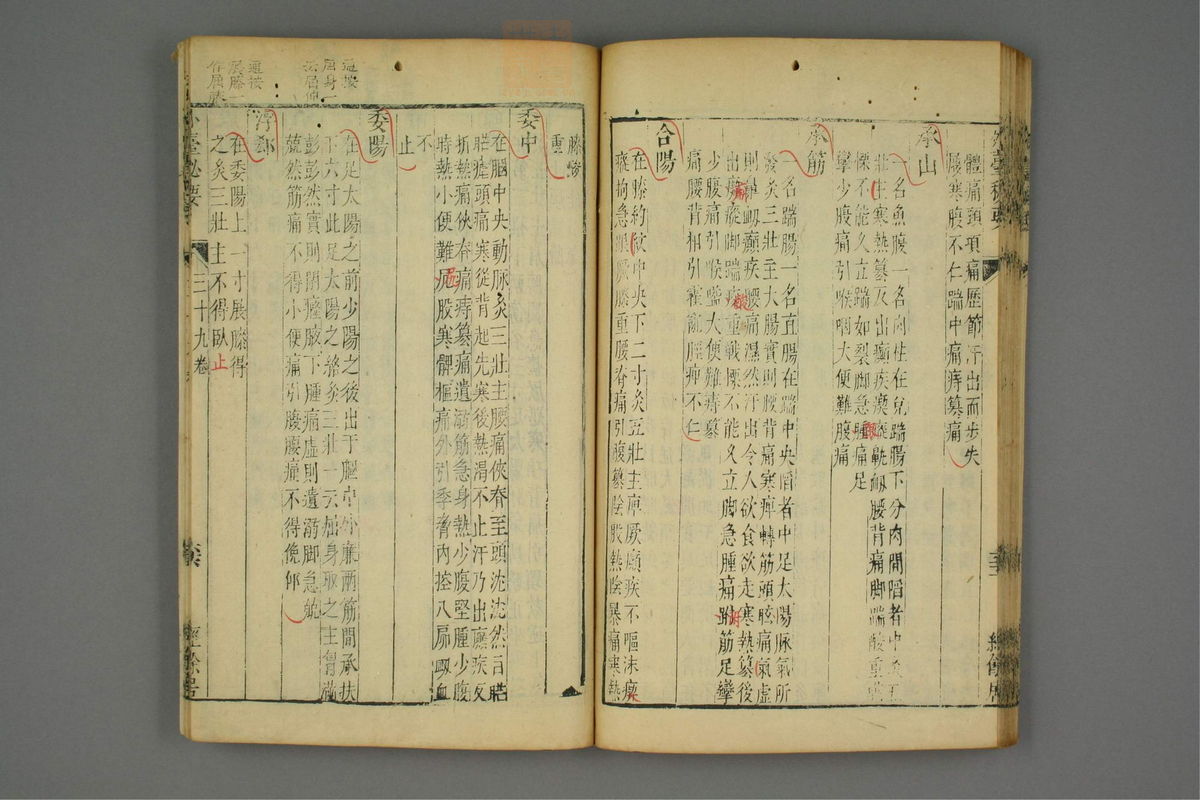 外臺秘要
體痛頭項痛歷節汗出而步失
履寒腹不仁踹中痛痔篡痛
承山
一名魚腹一名肉柱在兌踹腸下分肉間陷者中灸五
壯主寒熱篡反出癲疾瘈瘲鼽衄腰背痛脚踹酸重戰
慄不能久立踹如裂脚急腫痛足
攣少腹痛引喉咽大便難腹痛
承筋
一名踹腸一名直腸在踹中央陷者中足太陽脉氣所
發灸三壯主大腸實則腰背痛寒痺轉筋頭眩痛氣虛
則鼻衄癲疾腰痛濕然汗出令人欲食欲走寒熱篡後
出瘈瘲脚踹酸重戰慄不能久立脚急腫痛跗筋足攣
少腹痛引喉嗌大便難痔篡
痛腰背相引霍亂脛痺不仁
合陽
在膝約紋中央下二寸灸五壯主痺厥癲疾不嘔沫瘈
瘲拘急跟厥膝重腰脊痛引腹篡陰股熱陰暴痛寒熱
經餘居
膝痠
重
委中
在膕中央動脉灸三壯主腰痛俠脊至頭沈沈然目䀮
䀮瘧頭痛寒從背起先寒後熱渴不止汗乃出癃疾反
折熱痛俠脊痛痔篡痛遺溺筋急身熱少腹堅腫少腹
時熱小便難尻股寒髀樞痛外引季脅內控八窌衄血
不
止
委陽
在足太陽之前少陽之後出于膕中外廉兩筋間承扶
下六寸此足太陽之絡灸三壯一云屈身取之主胷滿
彭彭然實則閉癃腋下腫痛虛則遺溺脚急兢
兢然筋痛不得小便痛引腹腰痛不得俛仰
浮郄
在委陽上一寸展膝得
之灸三壯主不得臥止
外臺秘要
三十九卷
經餘居